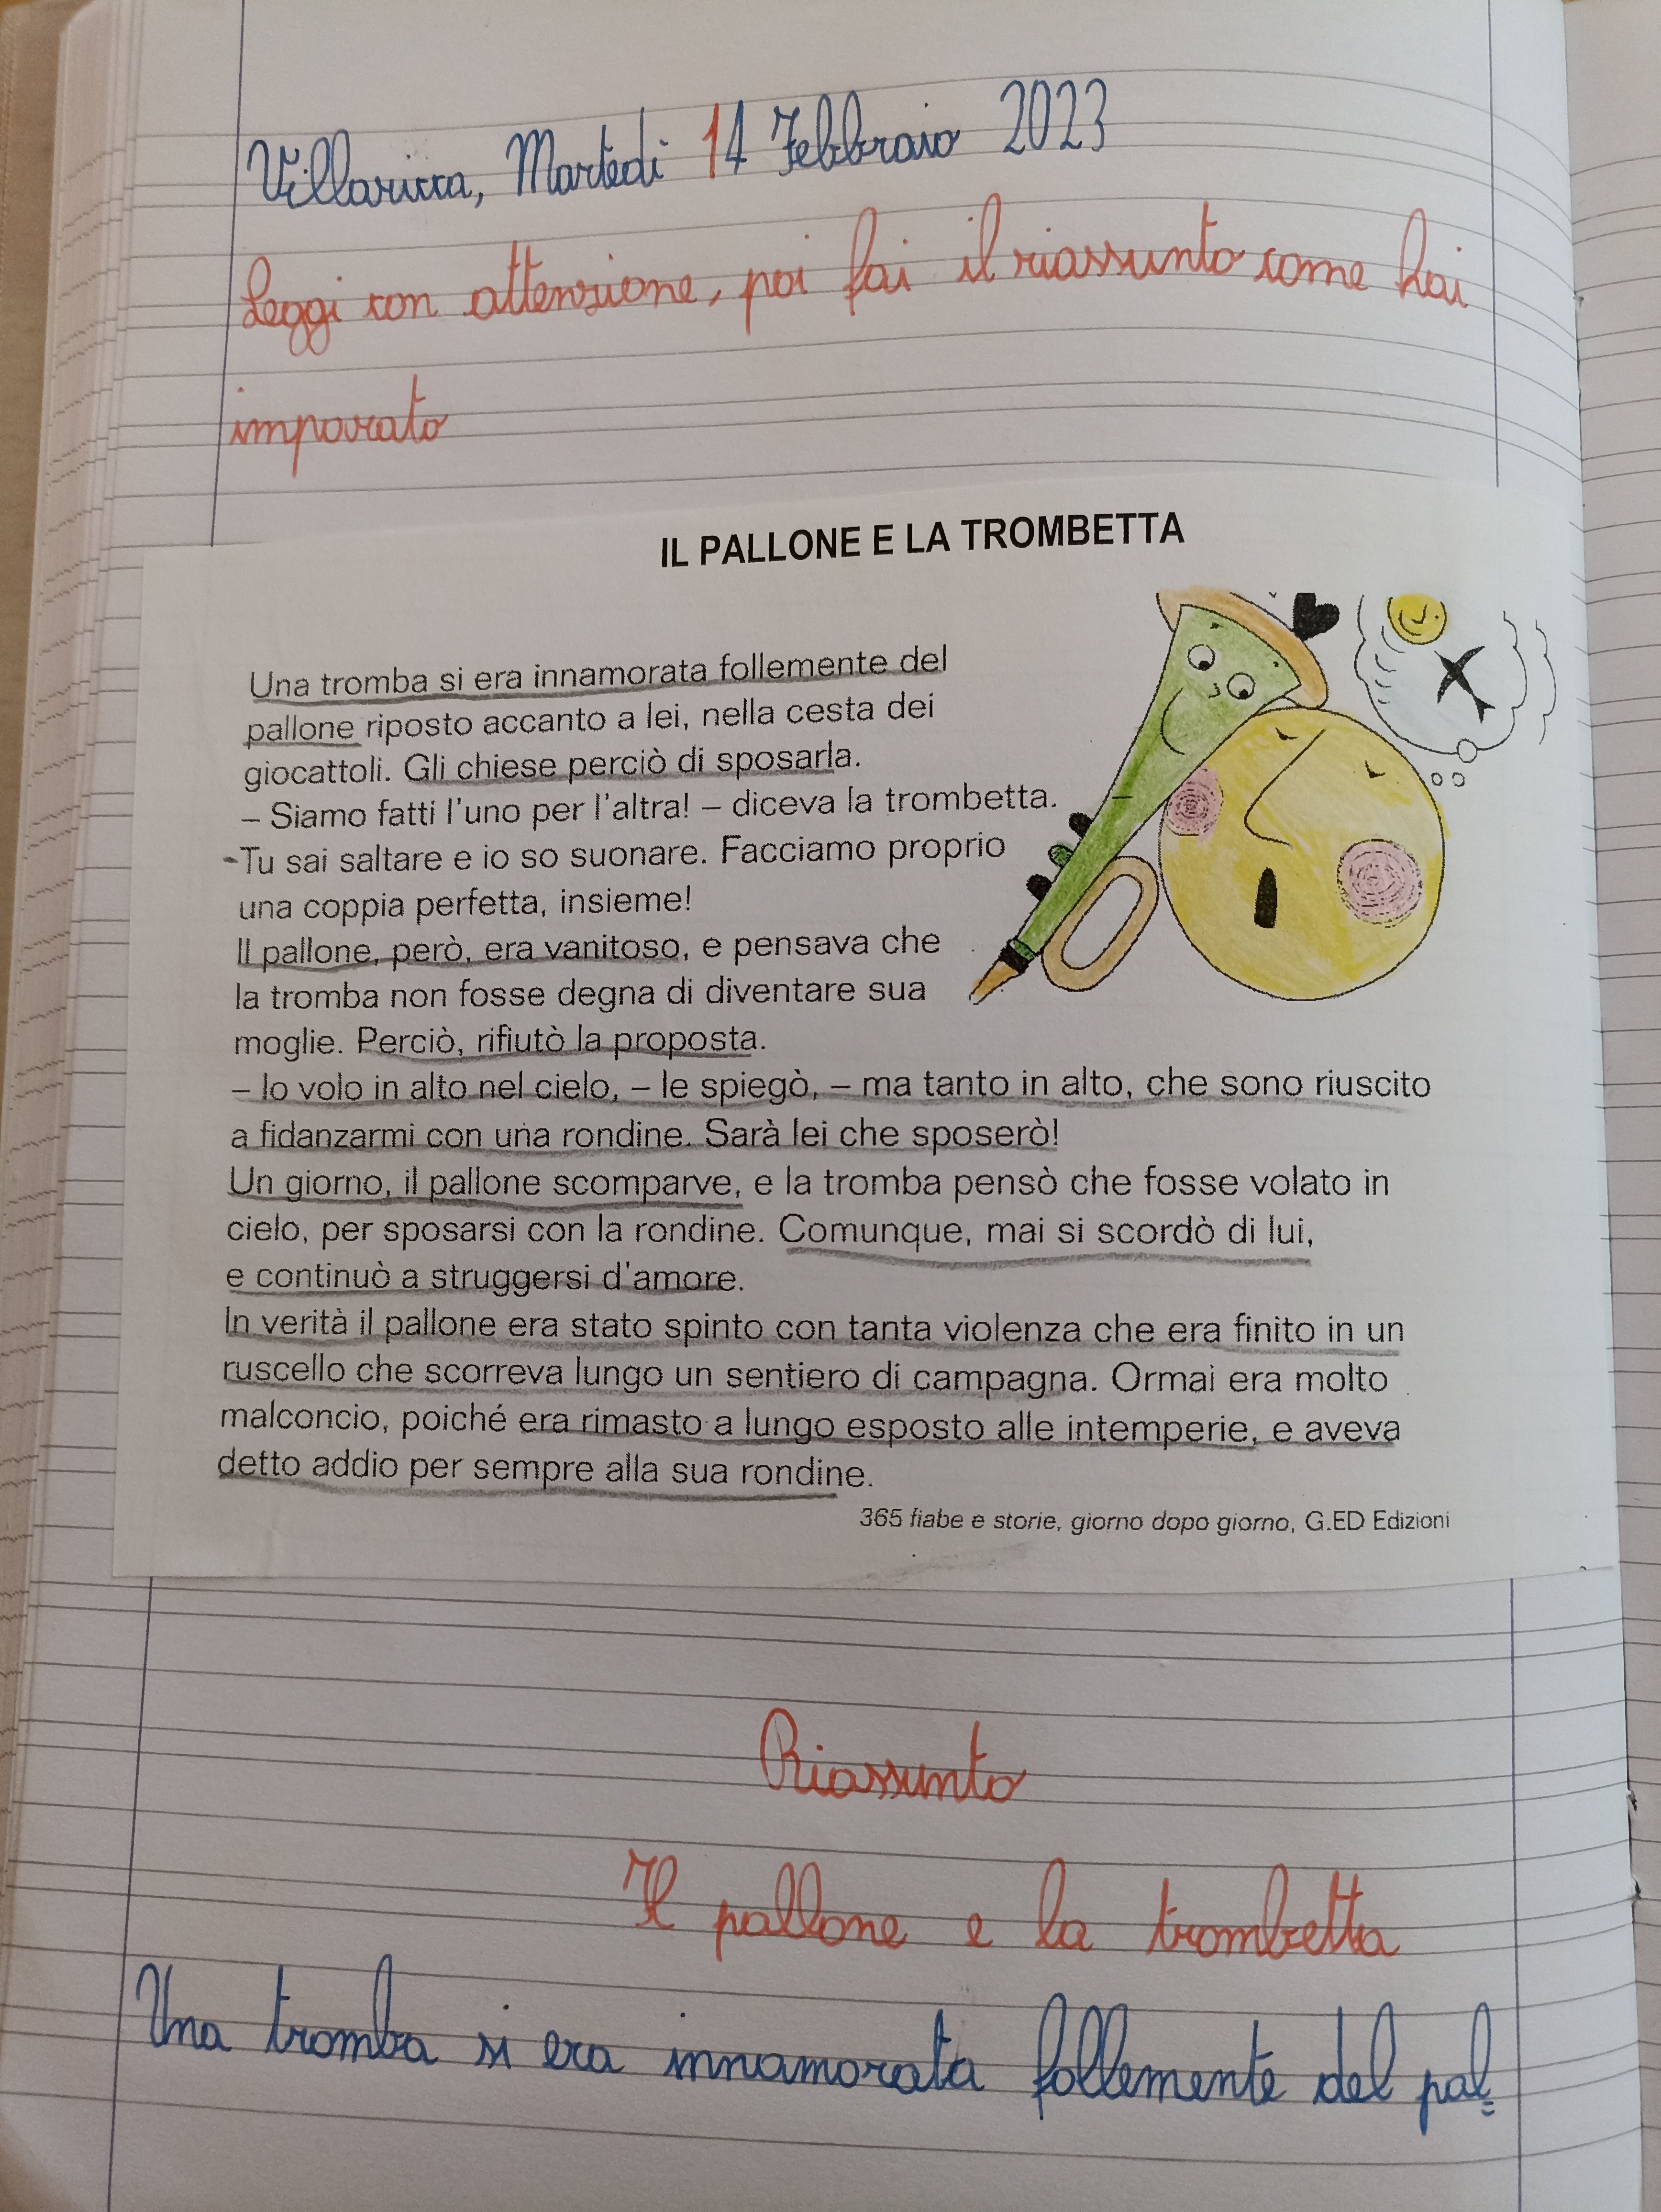 Villaricca, Martedì 14 Febbraio 2023
Leggi con attenzione, poi fai il riassunto come hai
imparato
IL PALLONE E LA TROMBETTA
Una tromba si era innamorata follemente del
pallone riposto accanto a lei, nella cesta dei
giocattoli. Gli chiese perciò di sposarla.
– Siamo fatti l'uno per l'altra! – diceva la trombetta. –
-Tu sai saltare e io so suonare. Facciamo proprio
una coppia perfetta, insieme!
Il pallone, però, era vanitoso, e pensava che
la tromba non fosse degna di diventare sua
moglie. Perciò, rifiutò la proposta.
– Io volo in alto nel cielo, – le spiegò, – ma tanto in alto, che sono riuscito
a fidanzarmi con una rondine. Sarà lei che sposerò!
Un giorno, il pallone scomparve, e la tromba pensò che fosse volato in
cielo, per sposarsi con la rondine. Comunque, mai si scordò di lui,
e continuò a struggersi d'amore.
In verità il pallone era stato spinto con tanta violenza che era finito in un
ruscello che scorreva lungo un sentiero di campagna. Ormai era molto
malconcio, poiché era rimasto a lungo esposto alle intemperie, e aveva
detto addio per sempre alla sua rondine.
365 fiabe e storie, giorno dopo giorno, G.ED Edizioni
Riassunto
Il pallone e la trombetta
Una tromba si era innamorata follemente del pal=